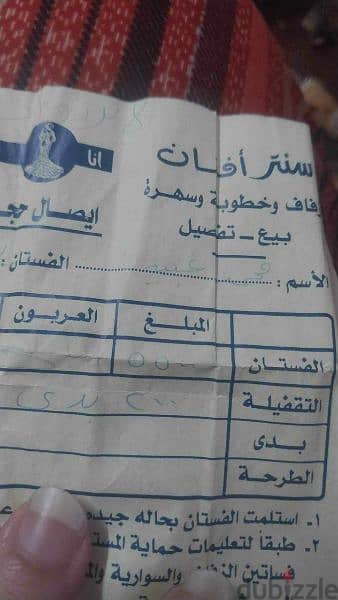 سنتر أفنان
أنا
زفاف وخطوبة وسهرة
بيع - تفصيل
ايصال حجـ
الأسم :
الفستان :
المبلغ
العربون
الفستان
٥٥٠٠
التقفيلة
٢٠٠
بدى
الطرحة
١- استلمت الفستان بحاله جيده
٢- طبقاً لتعليمات حماية المستـ
فساتين الزفاف والسوارية والـ
dubizzle